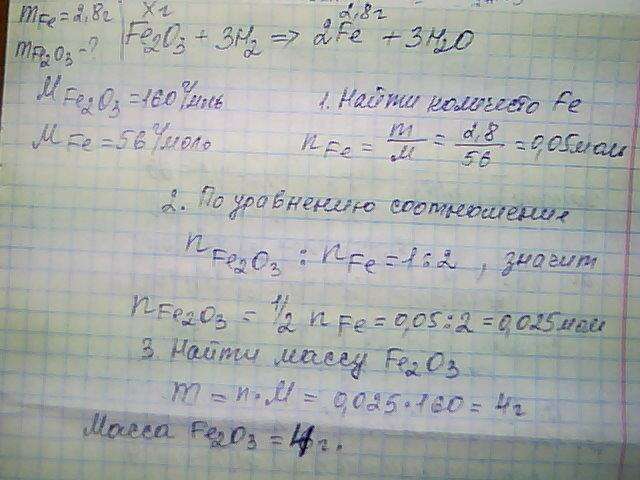 mFe = 2,8г
mFe₂O₃ - ?
Xг 2,8г
Fe₂O₃ + 3H₂ => 2Fe + 3H₂O
MFe₂O₃ = 160 г/моль
MFe = 56 г/моль
1. Найти количесто Fe
nFe = m/M = 2,8/56 = 0,05моль
2. По уравнению соотношение
nFe₂O₃ : nFe = 1:2, значит
nFe₂O₃ = 1/2 nFe = 0,05:2 = 0,025моль
3. Найти массу Fe₂O₃
m = n·M = 0,025·160 = 4г
Масса Fe₂O₃ = 4г.